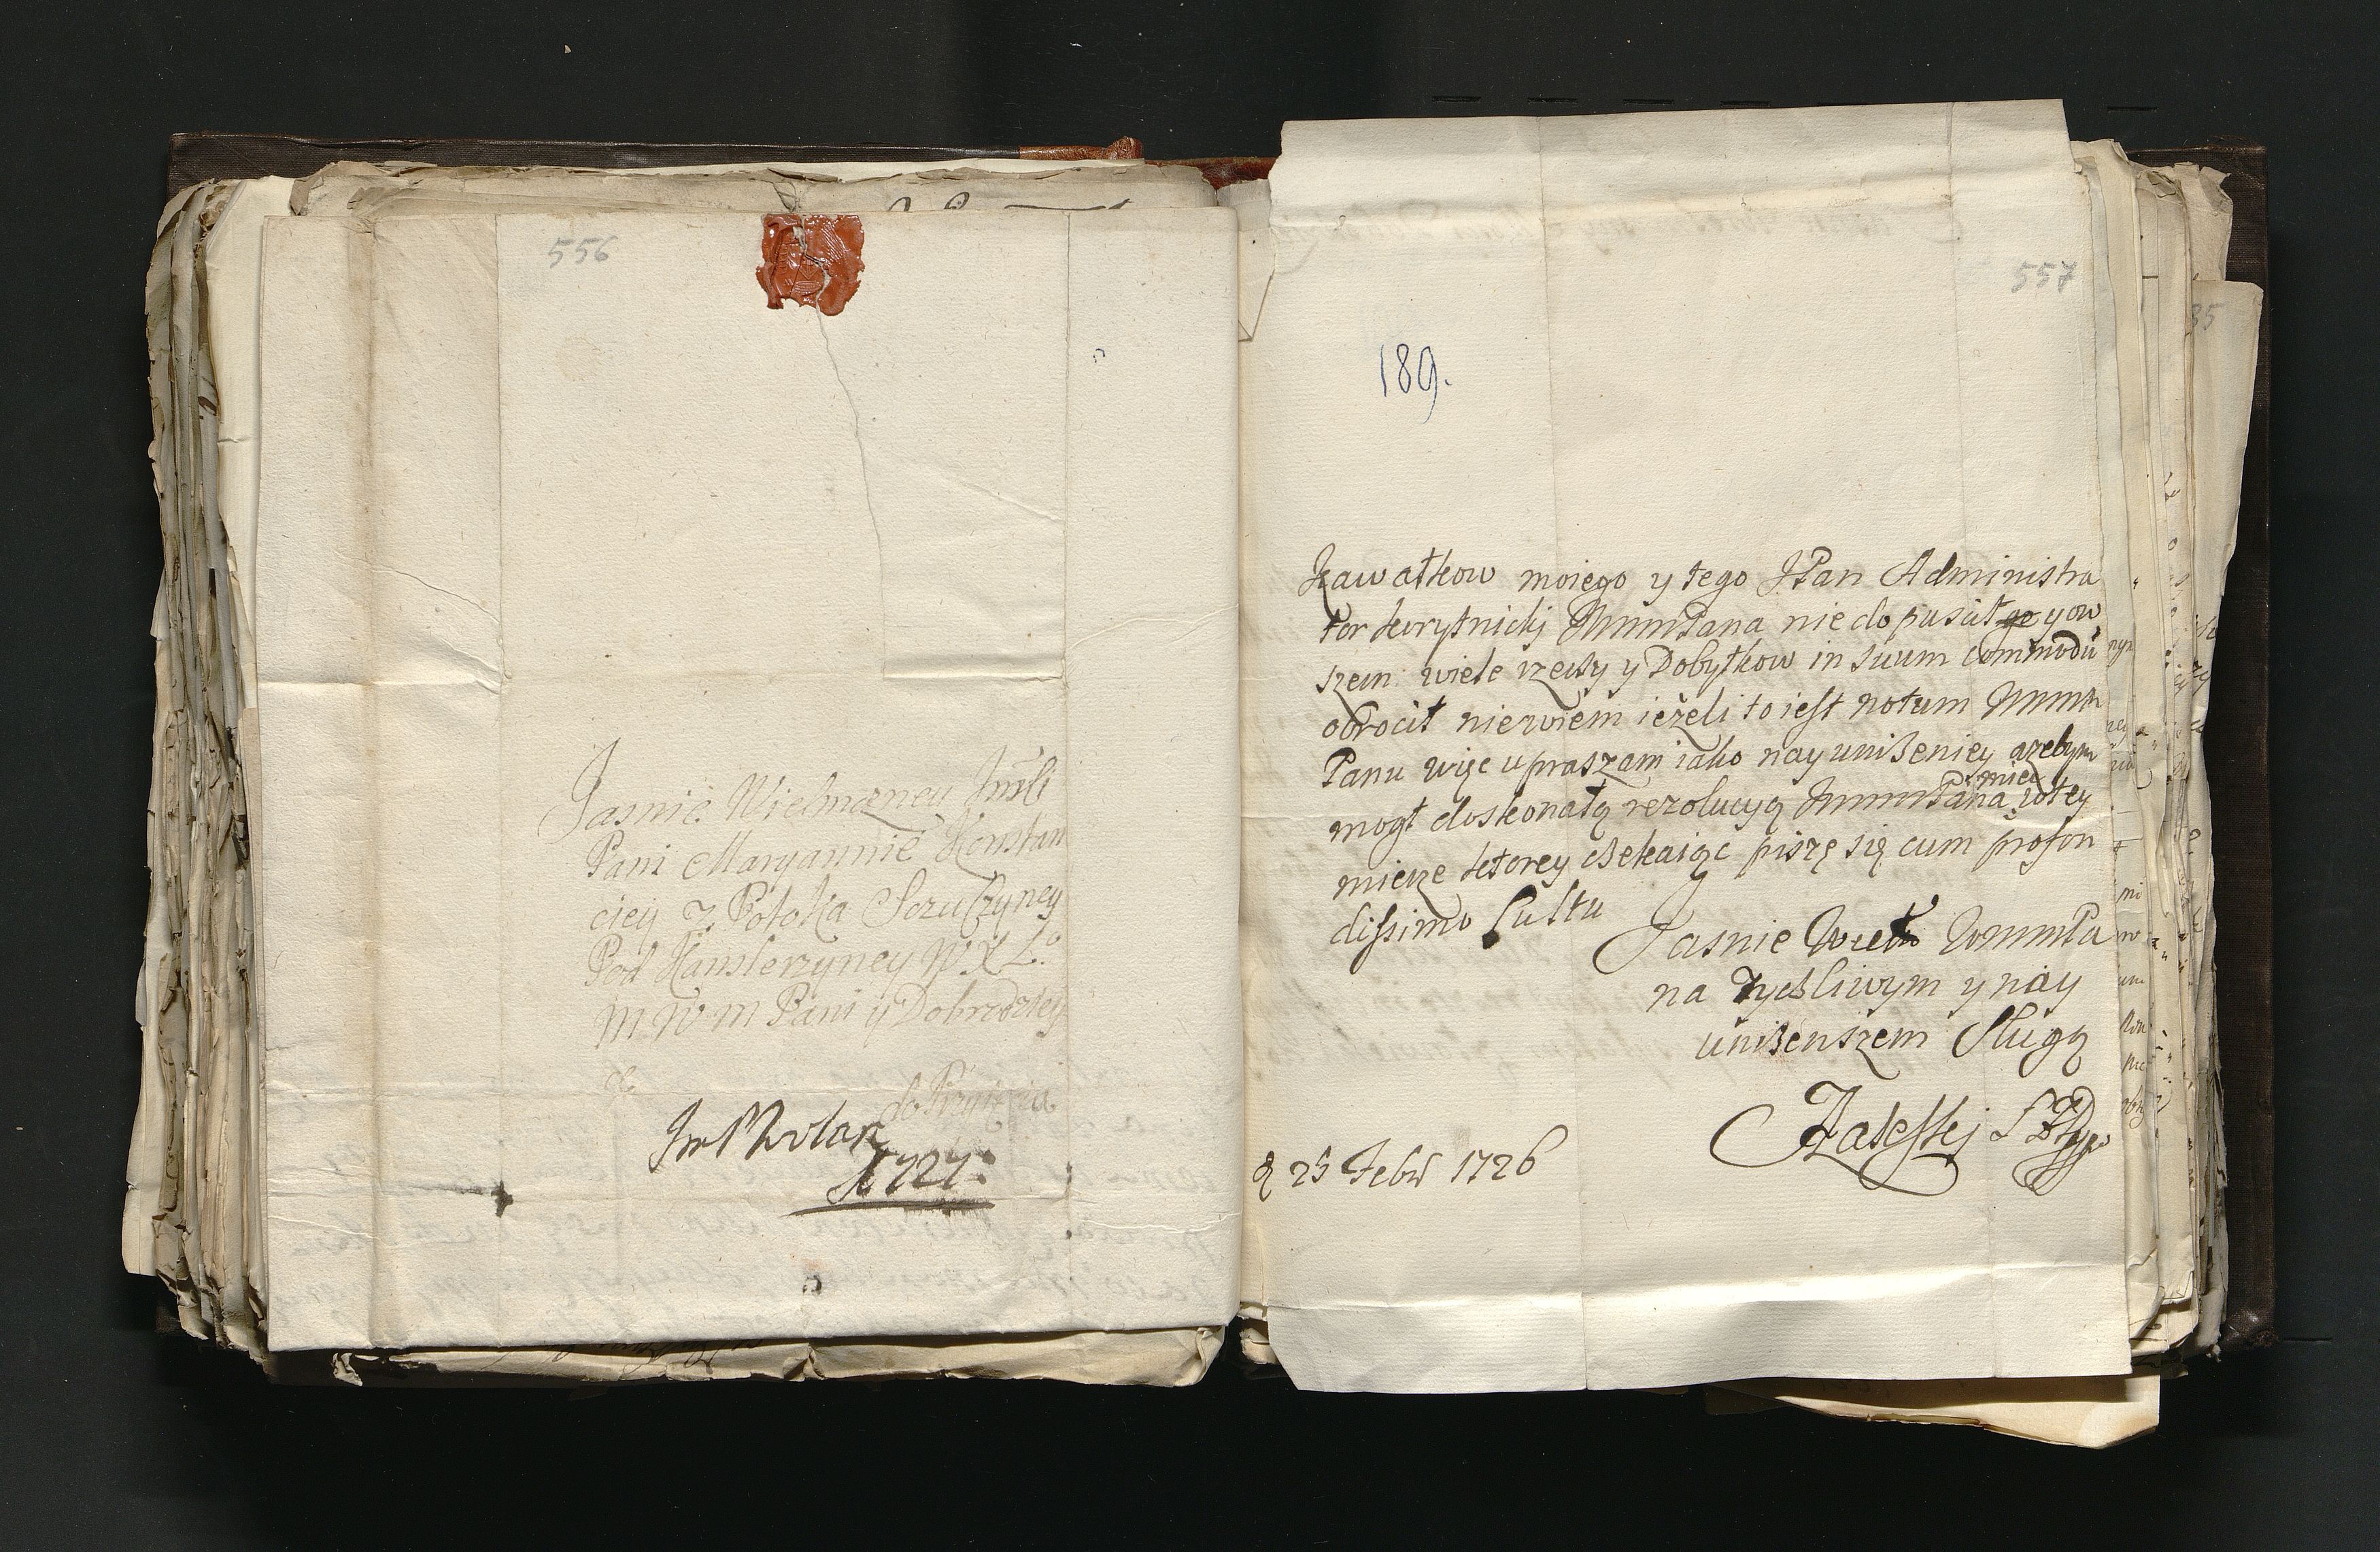 556
Jasnie Wielmozney Jmśći
Pani Maryannie Konstan
ciey z Potoka Sczuczyney
Pod Kanslerzyney W X L.
M W m Pani y Dobrodziey
do Rzyscia
1727.
557
189.
Kawałkow moiego y tego JPan Administra
tor kurytnickj WmmPana nie dopuscił go y ow
szem wiele rzeczy y Dobytkow in suum Commodū
obrocił niewiem ieżeli to iest notum Wmm
Panu więc upraszam iako nayuniżeniey azebym
mogł doskonałą rezolucyą WmmPana miec w tey
mierze ktorey czekaiąc piszę się cum profon
dissimo Cultu
Jasnie Wiel WmmPa
na Życzliwym y nay
uniżenszem Sługą
Zaleskj
25 Febr 1726
35